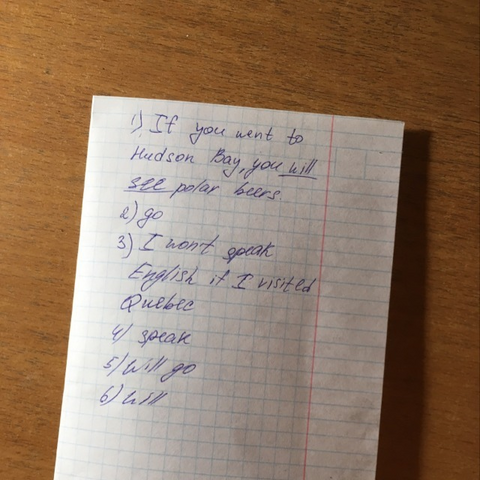 1) If you went to
Hudson Bay, you will
see polar beers.
2) go
3) I won't speak
English if I visited
Quebec
4) speak
5) will go
6) will